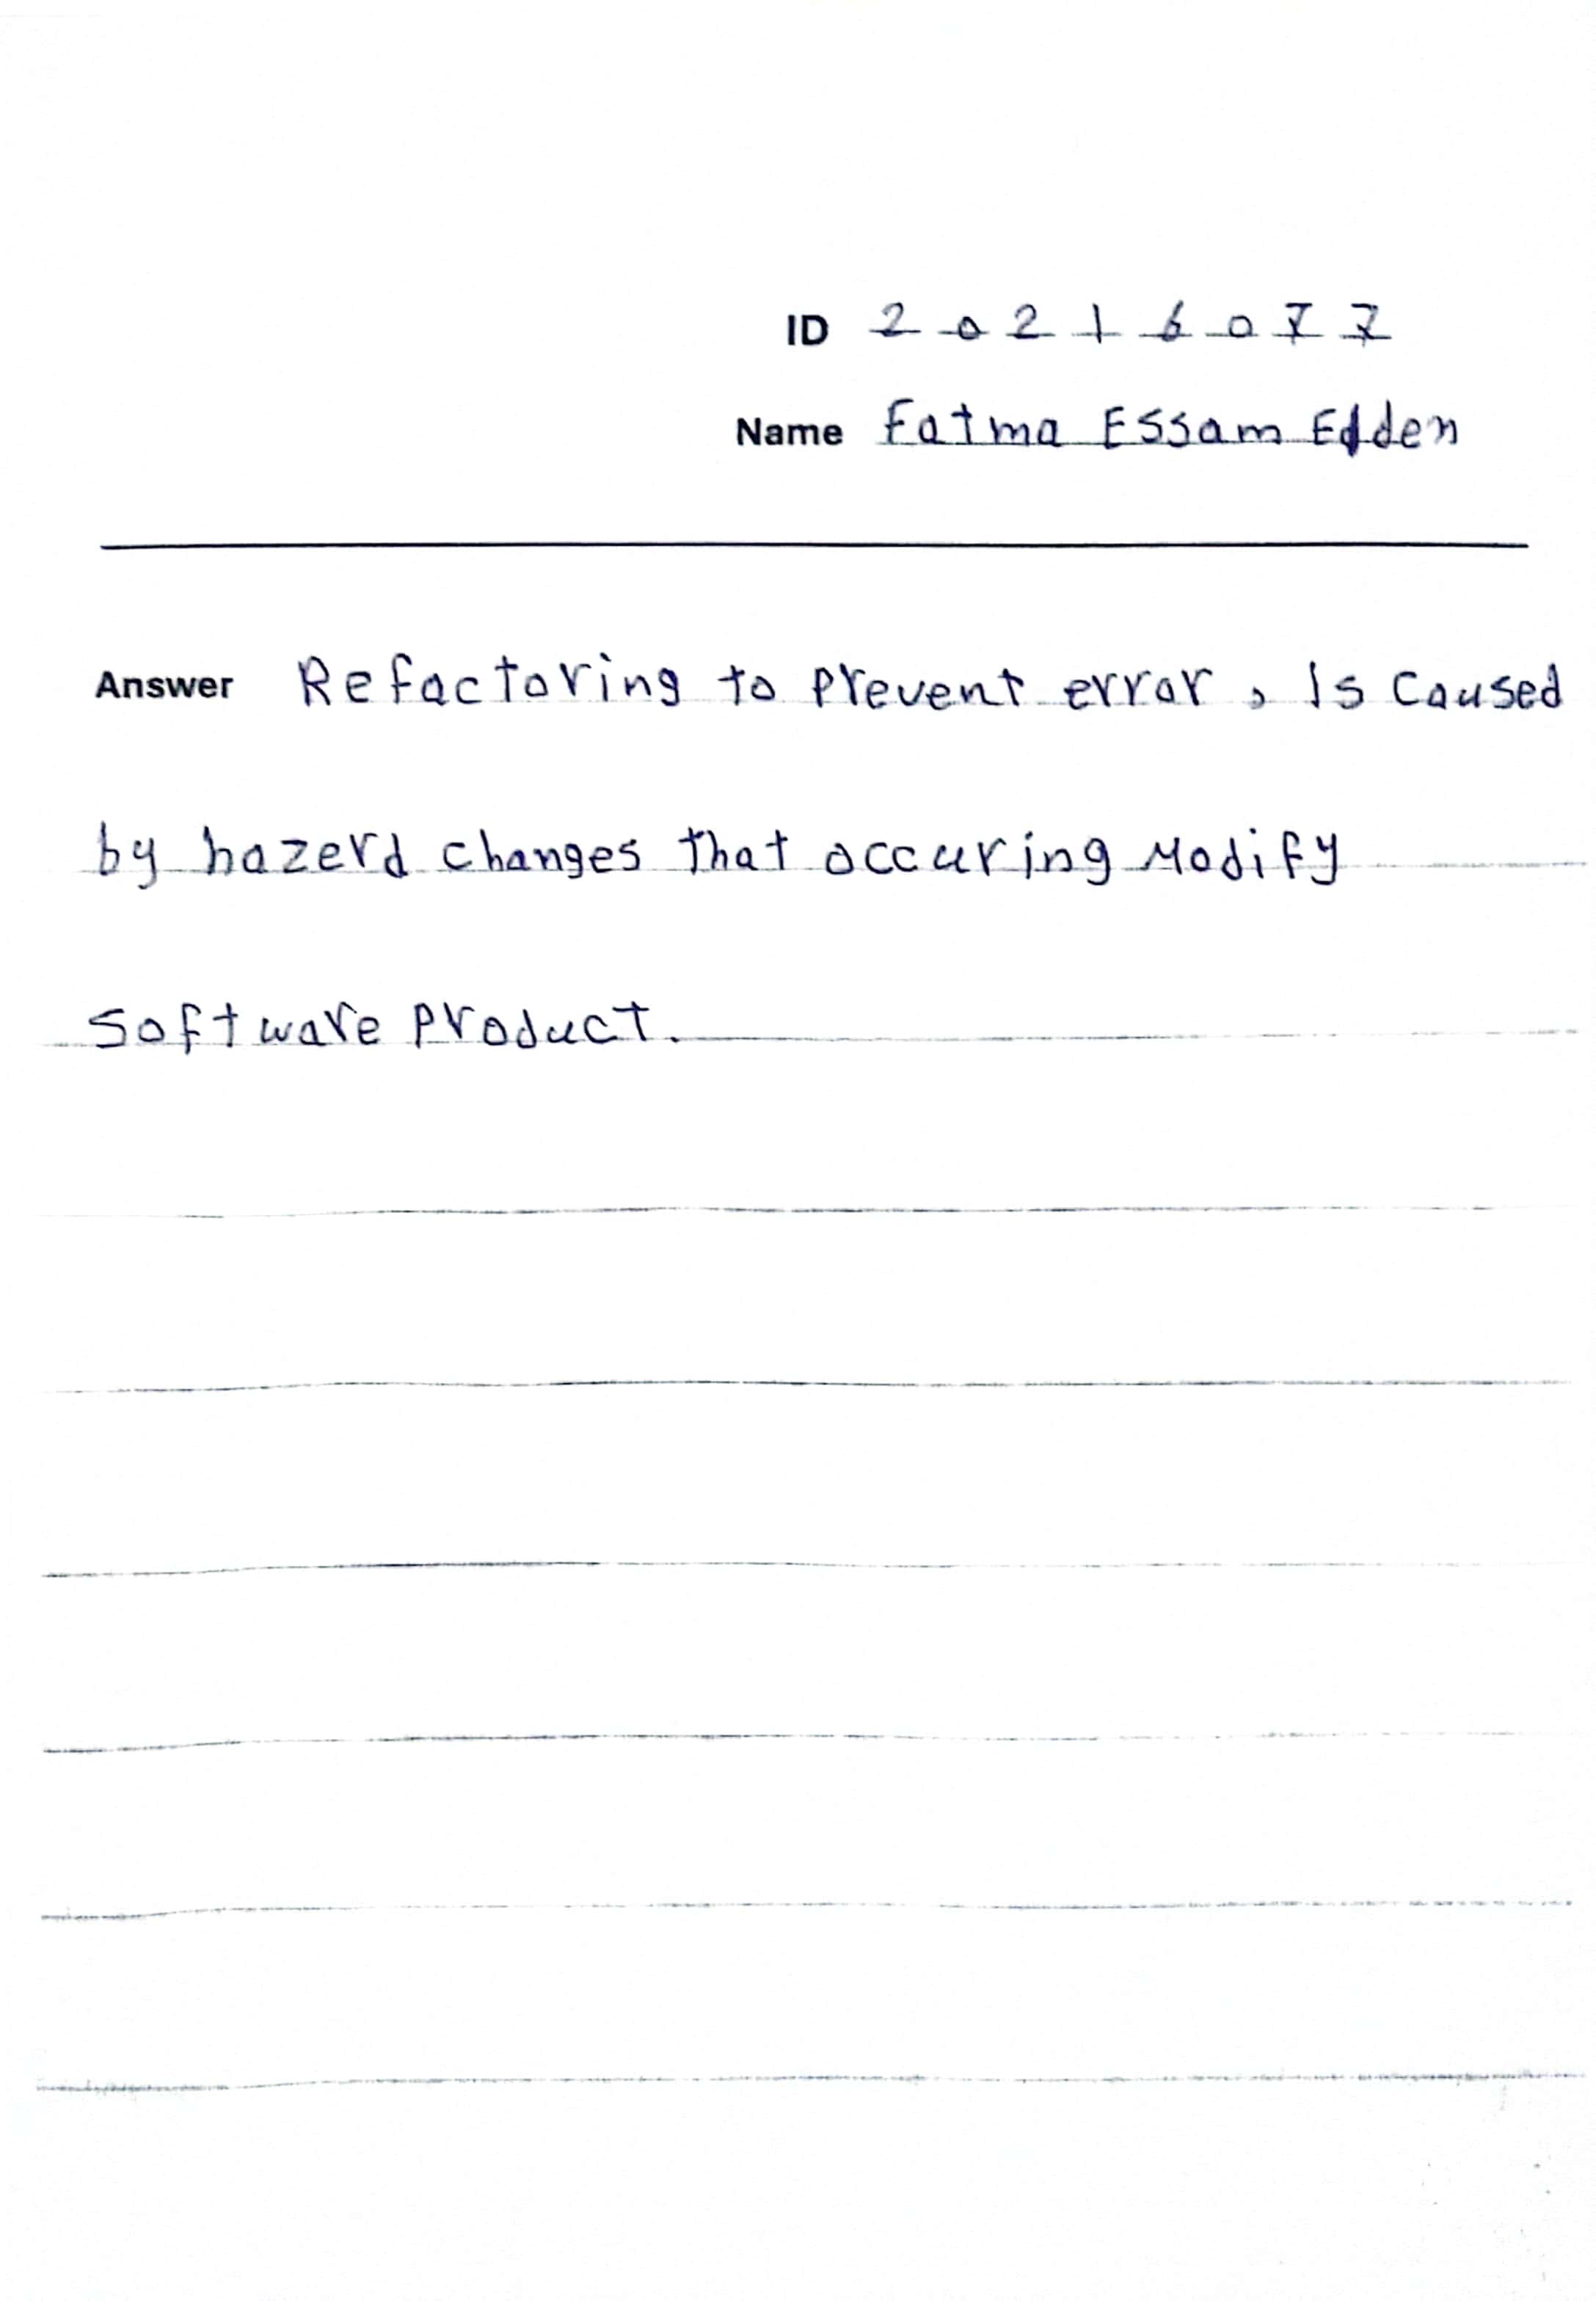 ID 20216077
Name Fatma Essam Edden
Answer Refactoring to prevent error, Is caused
by hazerd changes that occuring Modify
software product.